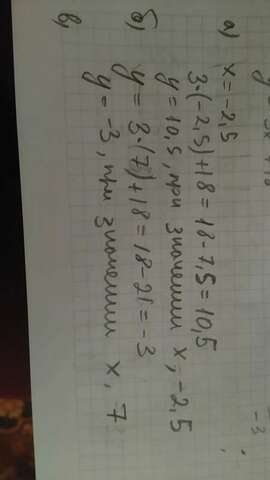 а) x = -2,5
3·(-2,5)+18 = 18-7,5 = 10,5
y = 10,5, при значении x, -2,5
б)
y = 3·(7)+18 = 18-21 = -3
y = -3, при значении x, 7
в)
-3